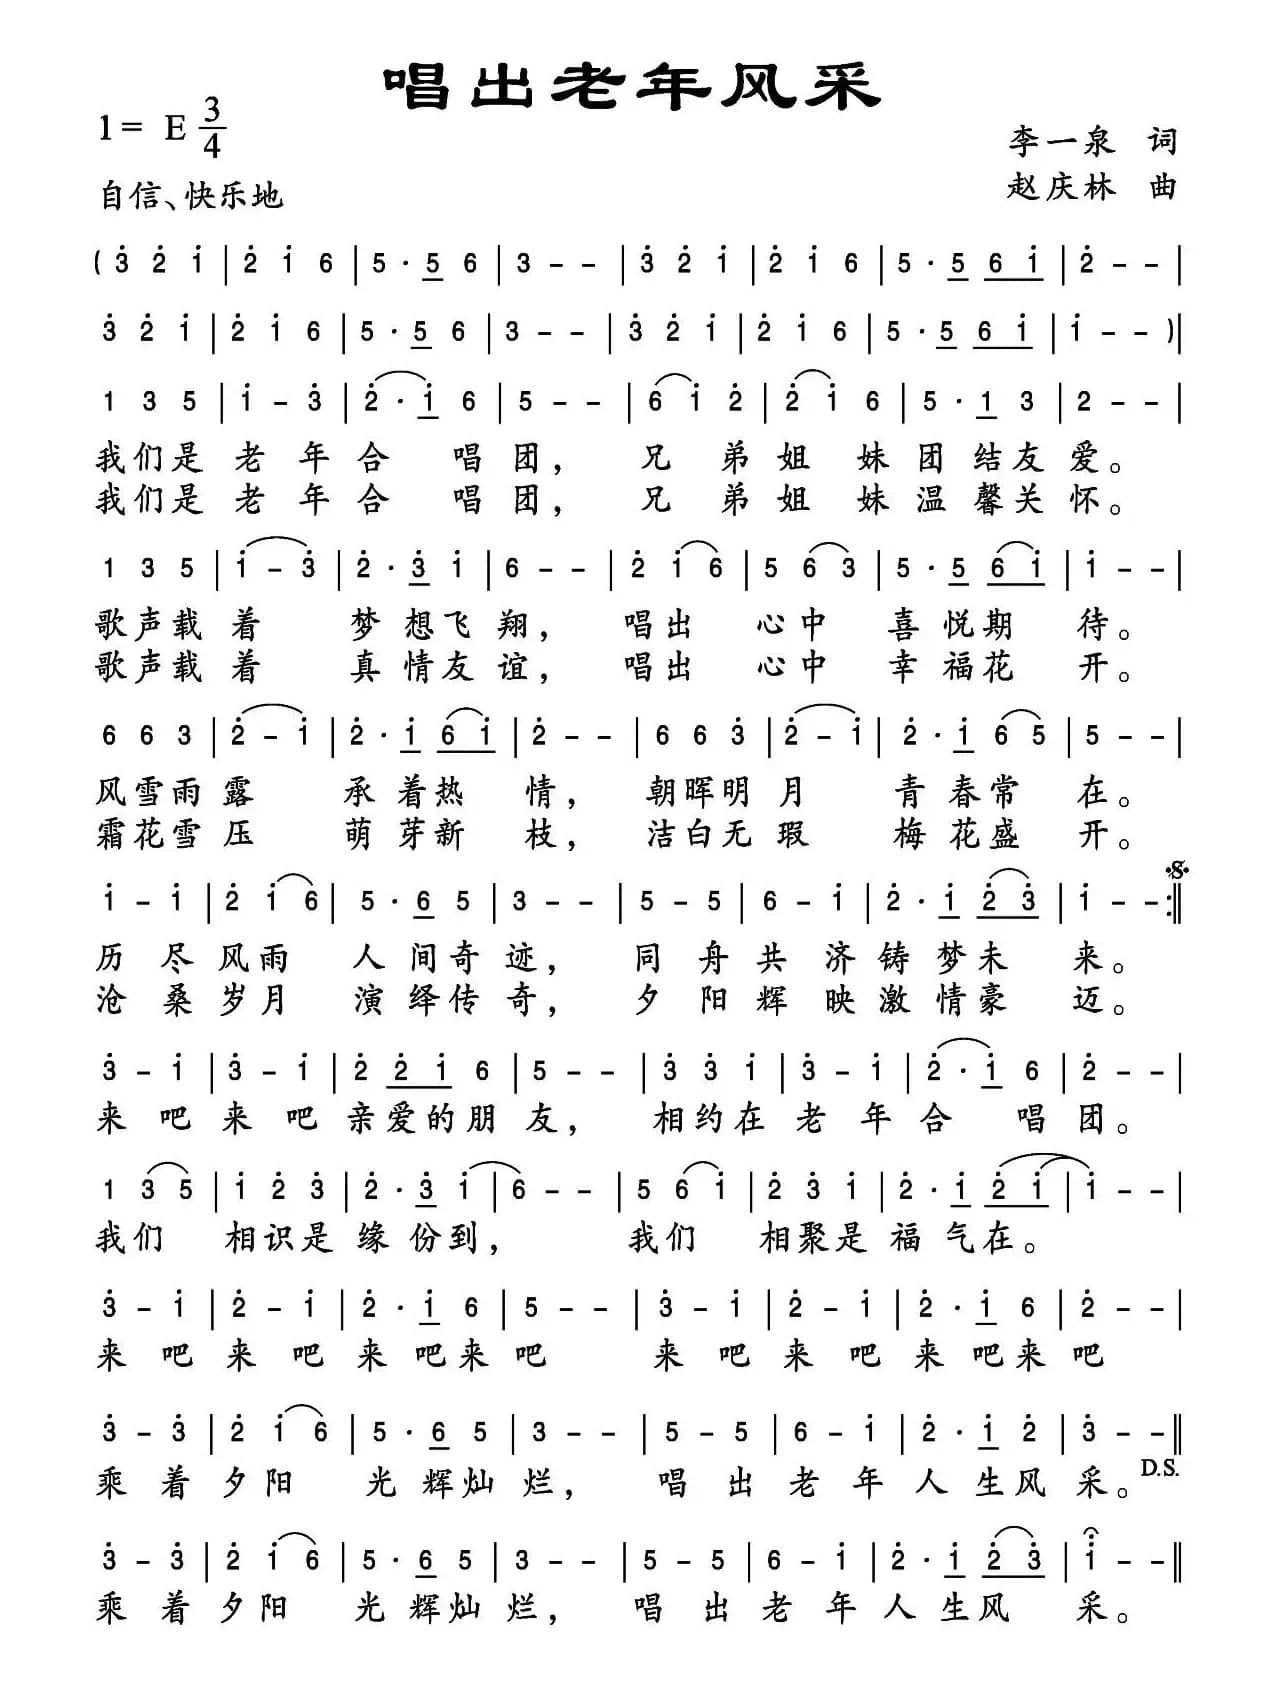 唱出老年风采
1= E 3/4
李一泉 词
自信、快乐地
赵庆林 曲
( 3̇ 2̇ 1̇ | 2̇ 1̇ 6 | 5 · 5 6 | 3 - - | 3̇ 2̇ 1̇ | 2̇ 1̇ 6 | 5 · 5 6 1̇ | 2̇ - - |
3̇ 2̇ 1̇ | 2̇ 1̇ 6 | 5 · 5 6 | 3 - - | 3̇ 2̇ 1̇ | 2̇ 1̇ 6 | 5 · 5 6 1̇ | 1̇ - - )|
1 3 5 | 1̇ - 3̇ | 2̇ · 1̇ 6 | 5 - - | 6 1̇ 2̇ | 2̇ 1̇ 6 | 5 · 1 3 | 2 - - |
我们是 老 年 合 唱 团， 兄 弟 姐 妹 团 结 友 爱。
我们是 老 年 合 唱 团， 兄 弟 姐 妹 温 馨 关 怀。
1 3 5 | 1̇ - 3̇ | 2̇ · 3̇ 1̇ | 6 - - | 2̇ 1̇ 6 | 5 6 3 | 5 · 5 6 1̇ | 1̇ - - |
歌声载 着 梦 想 飞 翔， 唱出 心中 喜 悦期 待。
歌声载 着 真 情 友 谊， 唱出 心中 幸 福花 开。
6 6 3 | 2̇ - 1̇ | 2̇ · 1̇ 6 1̇ | 2̇ - - | 6 6 3̇ | 2̇ - 1̇ | 2̇ · 1̇ 6 5 | 5 - - |
风雪雨 露 承 着热 情， 朝晖明 月 青 春常 在。
霜花雪 压 萌 芽新 枝， 洁白无 瑕 梅 花盛 开。
1̇ - 1̇ | 2̇ 1̇ 6 | 5 · 6 5 | 3 - - | 5 - 5 | 6 - 1̇ | 2̇ · 1̇ 2̇ 3̇ | 1̇ - - :‖
历 尽 风雨 人 间奇 迹， 同 舟 共 济 铸 梦未 来。
沧 桑 岁月 演 绎传 奇， 夕 阳 辉 映 激 情豪 迈。
3̇ - 1̇ | 3̇ - 1̇ | 2̇ 2̇ 1̇ 6 | 5 - - | 3̇ 3̇ 1̇ | 3̇ - 1̇ | 2̇ · 1̇ 6 | 2̇ - - |
来 吧 来 吧 亲爱的朋 友， 相约在 老 年 合 唱 团。
1 3 5 | 1̇ 2̇ 3̇ | 2̇ · 3̇ 1̇ | 6 - - | 5 6 1̇ | 2̇ 3̇ 1̇ | 2̇ · 1̇ 2̇ 1̇ | 1̇ - - |
我们 相识是 缘 份到， 我们 相聚是 福 气在。
3̇ - 1̇ | 2̇ - 1̇ | 2̇ · 1̇ 6 | 5 - - | 3̇ - 1̇ | 2̇ - 1̇ | 2̇ · 1̇ 6 | 2̇ - - |
来 吧 来 吧 来 吧来 吧 来 吧 来 吧 来 吧来 吧
3̇ - 3̇ | 2̇ 1̇ 6 | 5 · 6 5 | 3 - - | 5 - 5 | 6 - 1̇ | 2̇ · 1̇ 2̇ | 3̇ - - ‖
乘 着 夕阳 光 辉灿 烂， 唱 出 老 年 人 生风 采。 D.S.
3̇ - 3̇ | 2̇ 1̇ 6 | 5 · 6 5 | 3 - - | 5 - 5 | 6 - 1̇ | 2̇ · 1̇ 2̇ 3̇ | 1̇ - - ‖
乘 着 夕阳 光 辉灿 烂， 唱 出 老 年 人 生风 采。